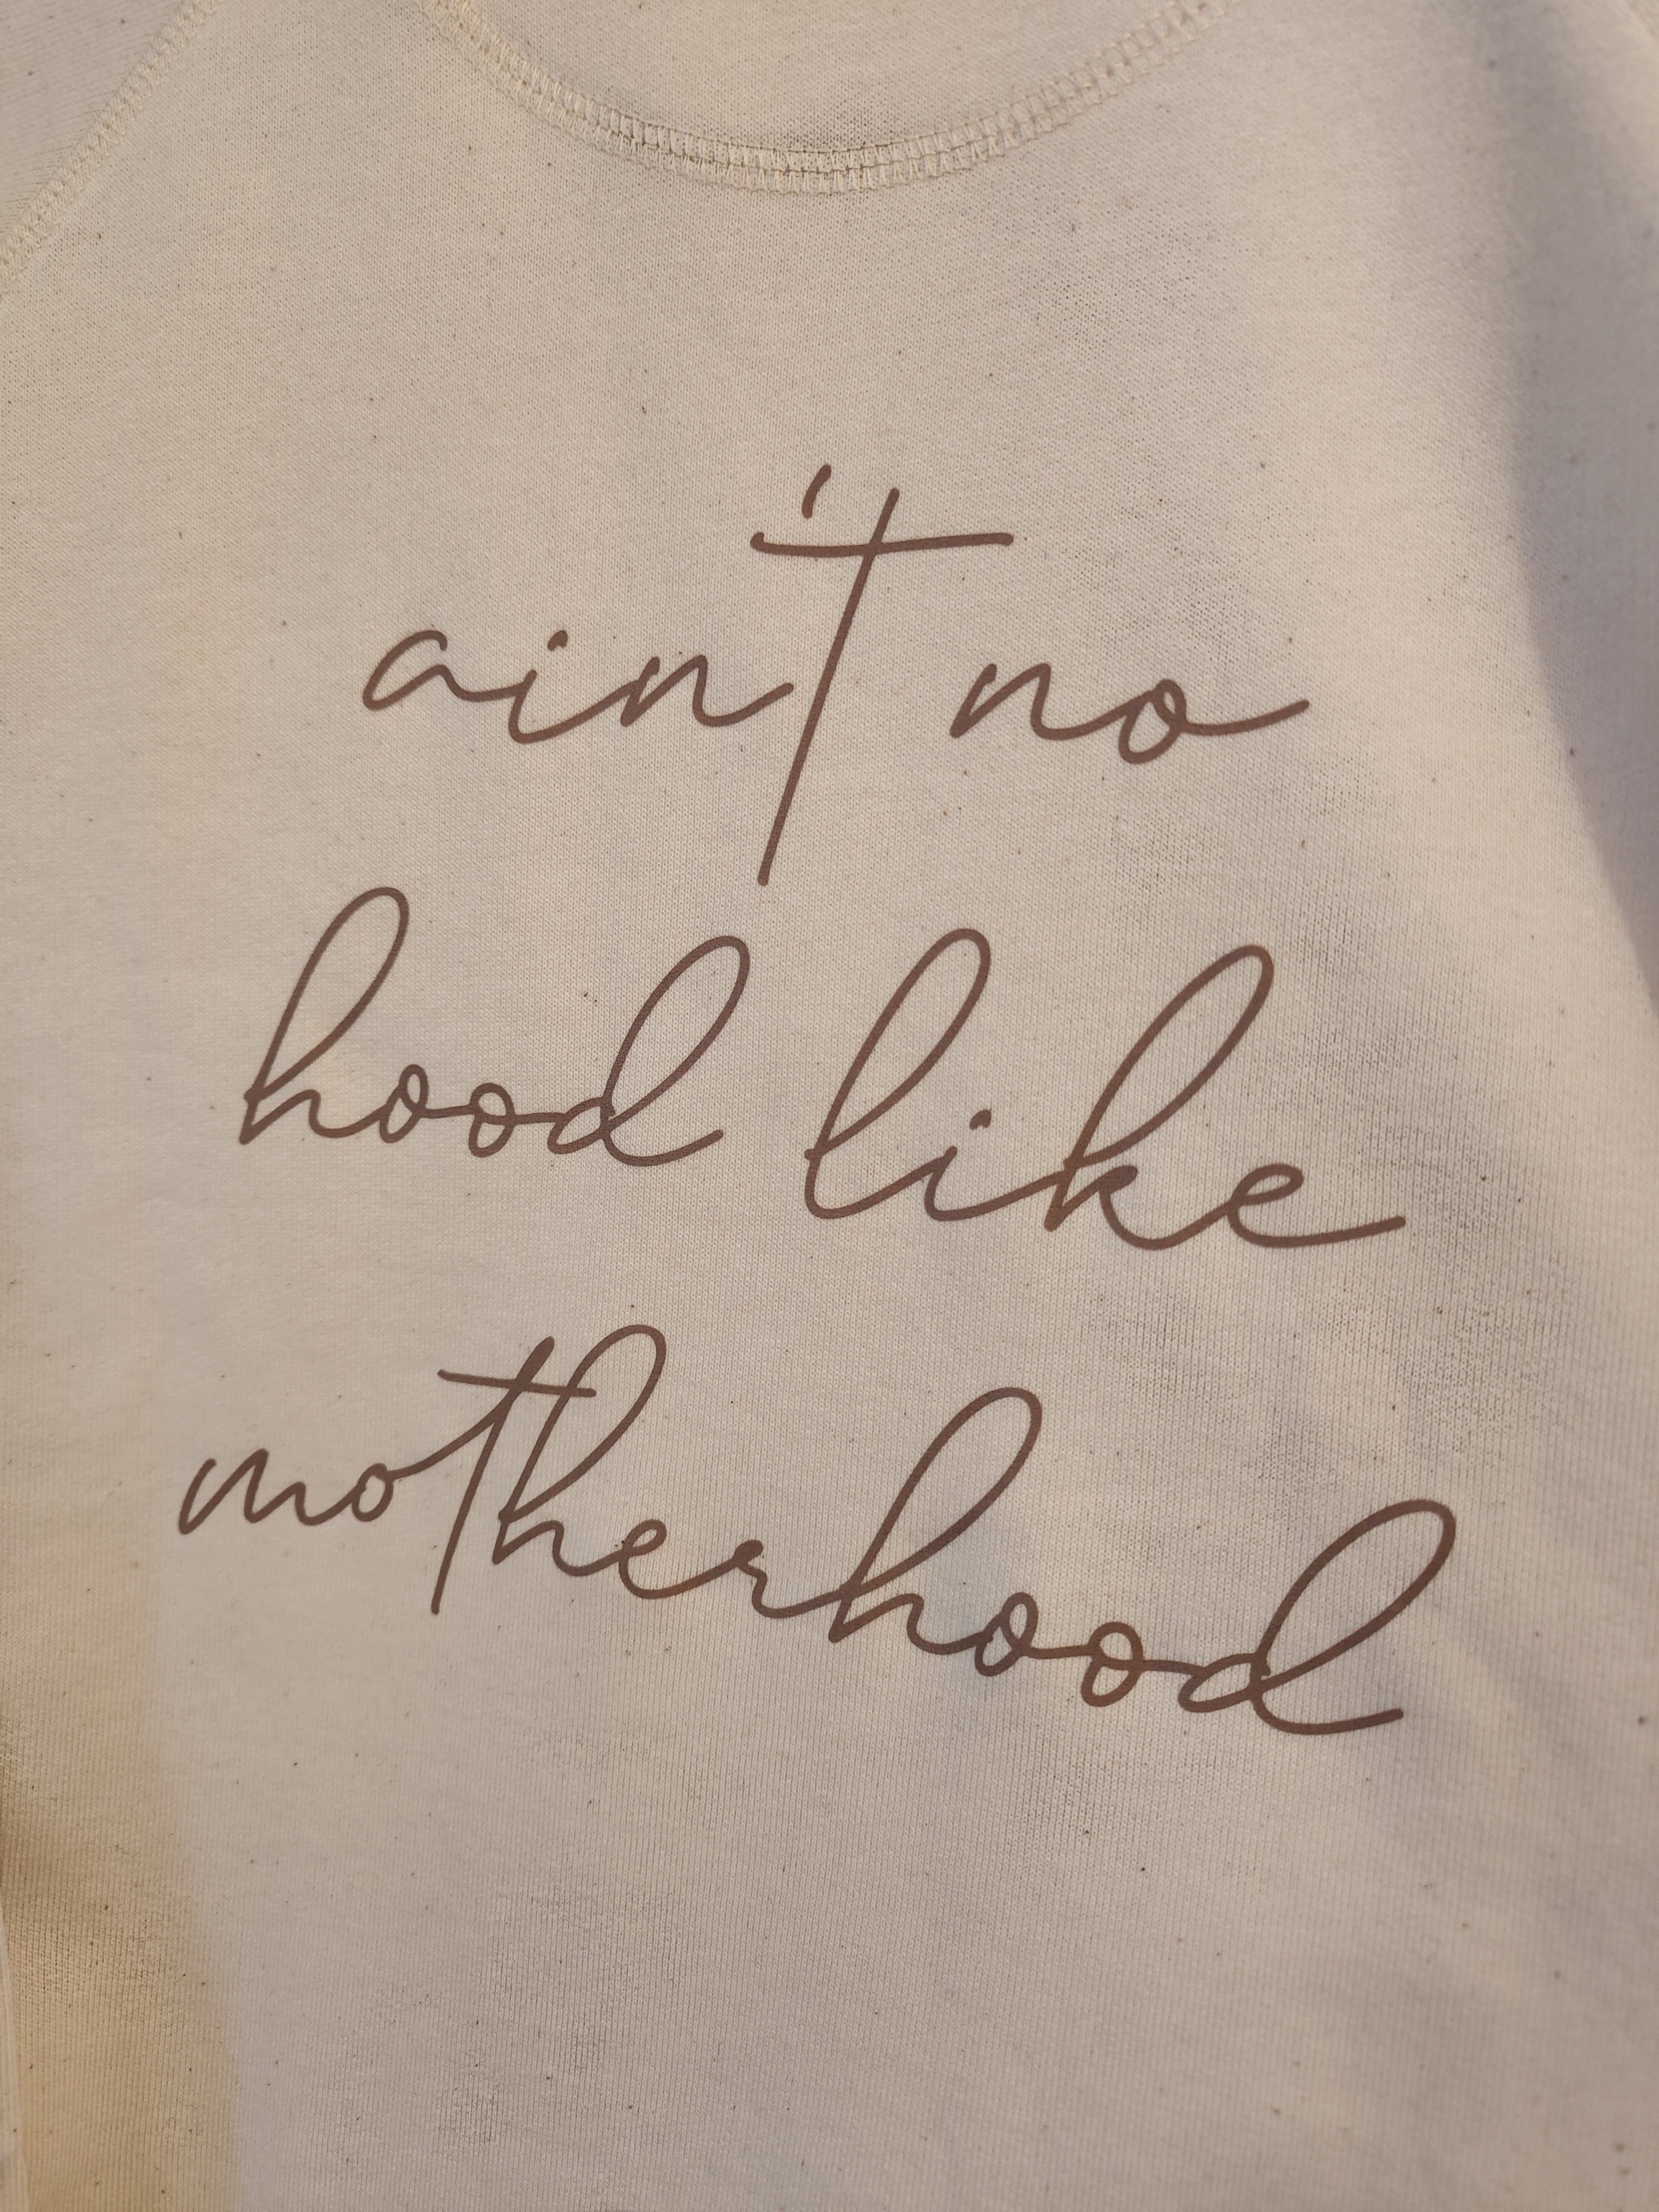 ain't no
hood like
motherhood